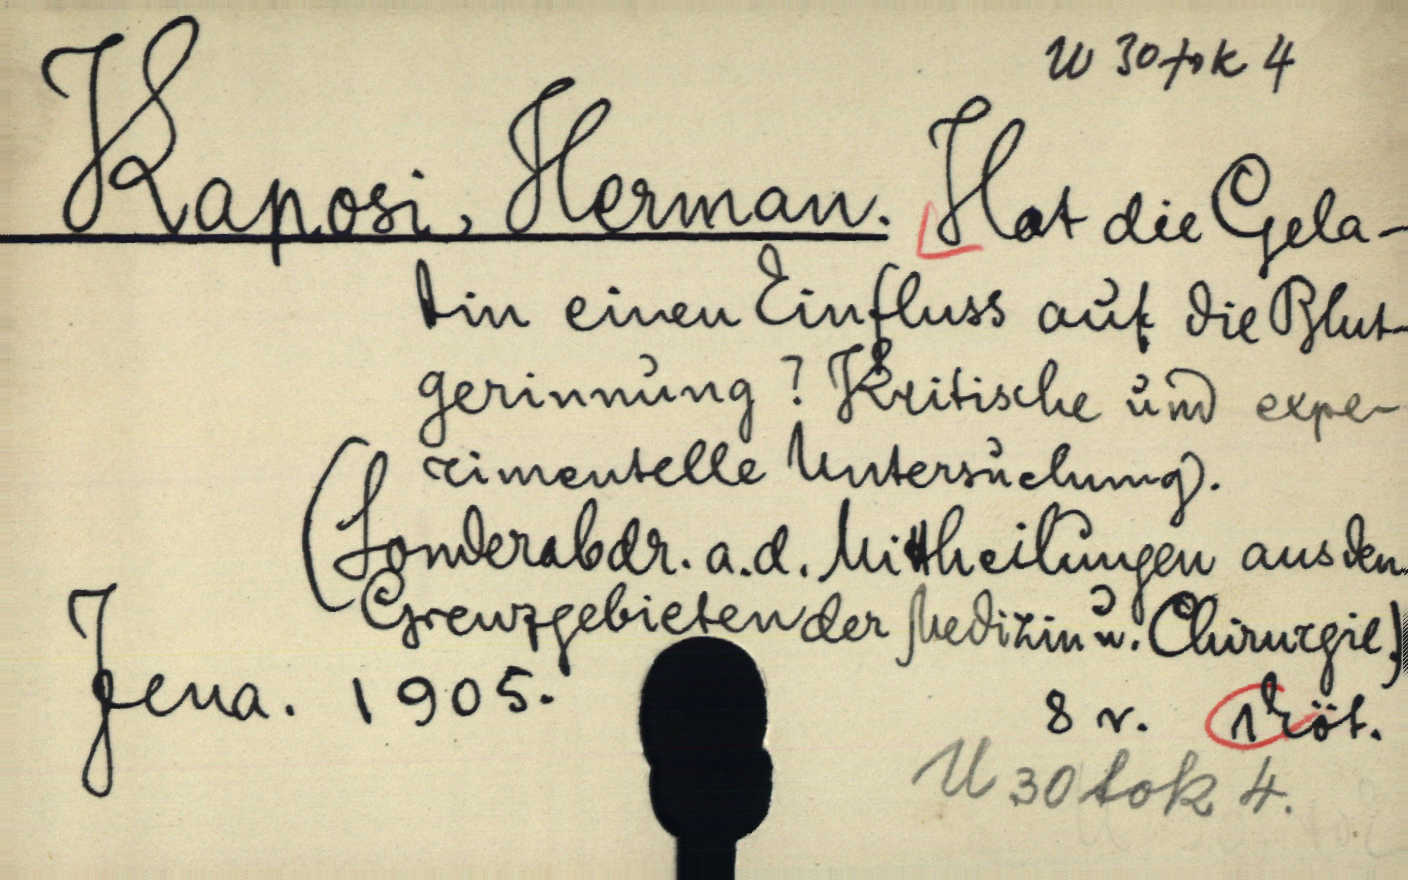 U 30 tok 4
Kaposi, Herman. Hat die Gela-
tin einen Einfluss auf die Blut-
gerinnung? Kritische und expe-
rimentelle Untersuchung.
(Sonderabdr. a. d. Mittheilungen aus den
Grenzgebieten der Medizin u. Chirurgie.)
Jena. 1905. 8 r. 1 köt.
U 30 tok 4.